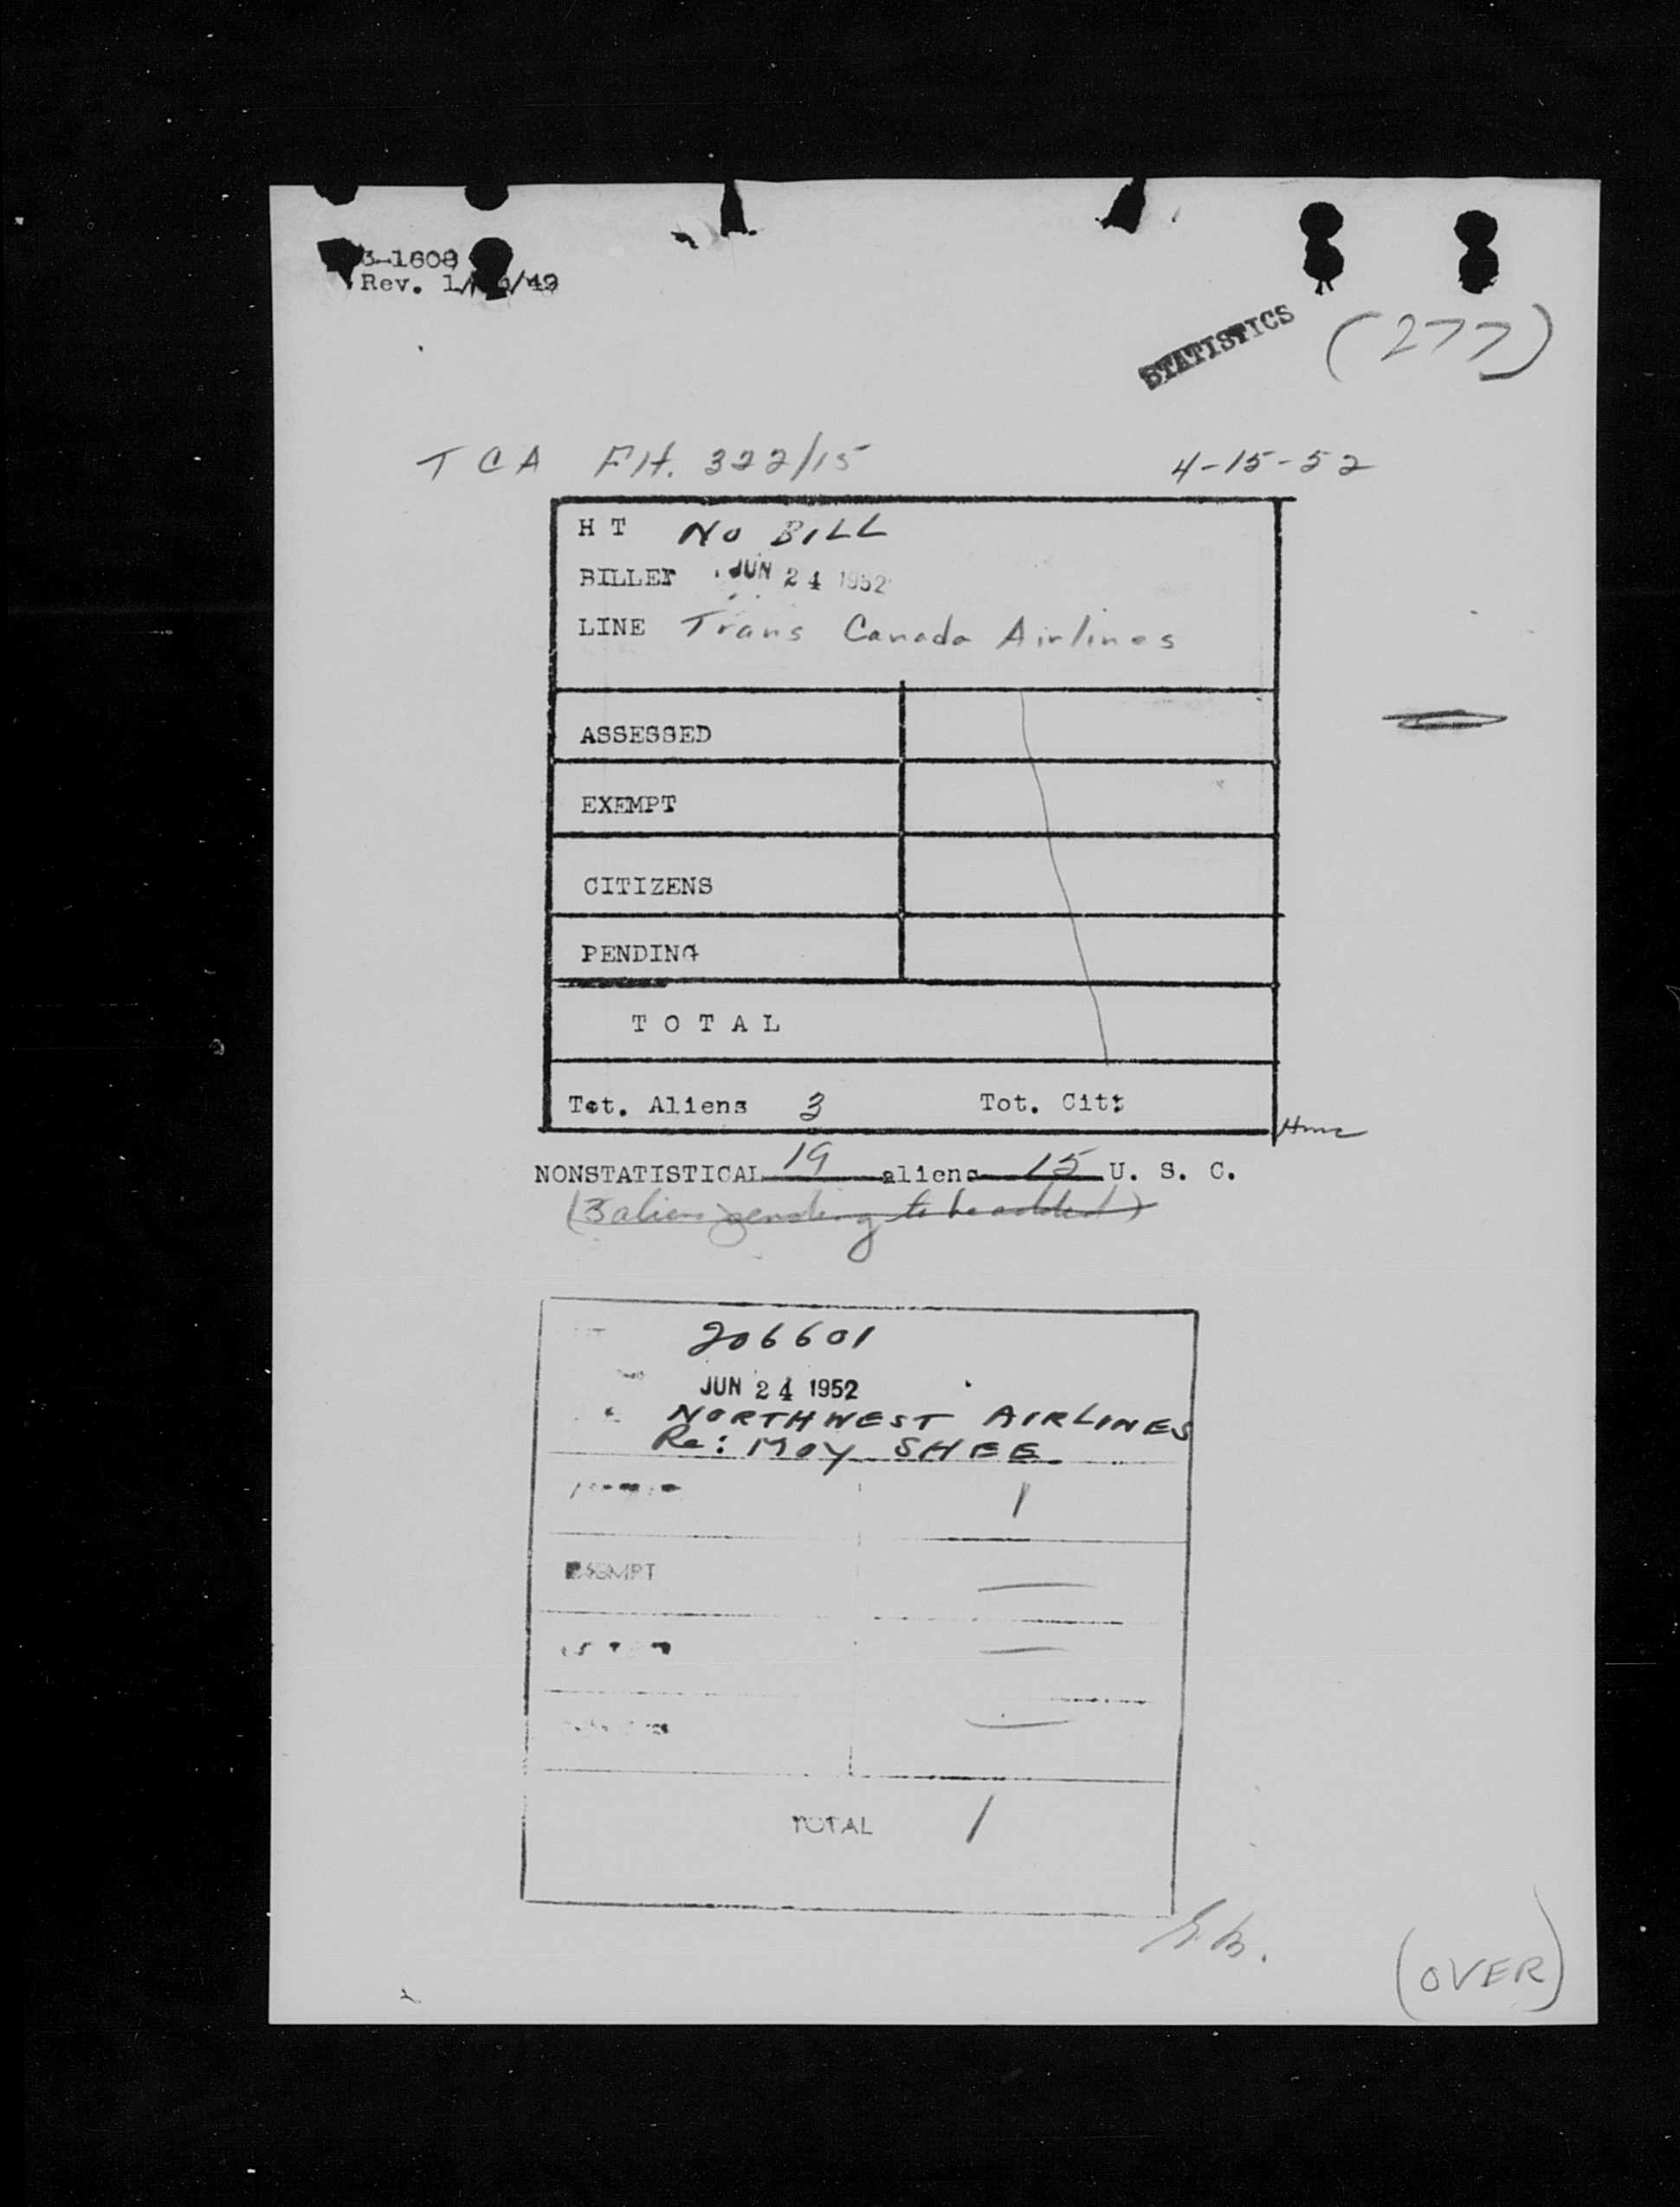 3-1608
Rev. 1/ /49
STATISTICS (277)
TCA Flt. 322/15 4-15-52
H T NO BILL
BILLED JUN 24 1952
LINE Trans Canada Airlines
ASSESSED
EXEMPT
CITIZENS
PENDING
T O T A L
Tot. Aliens 3 Tot. Cit:
NONSTATISTICAL 19 aliens 15 U. S. C.
(3 aliens pending to be added)
206601
JUN 24 1952
NORTHWEST AIRLINES
Re: MOY SHEE
1
EXEMPT
TOTAL 1
(OVER)